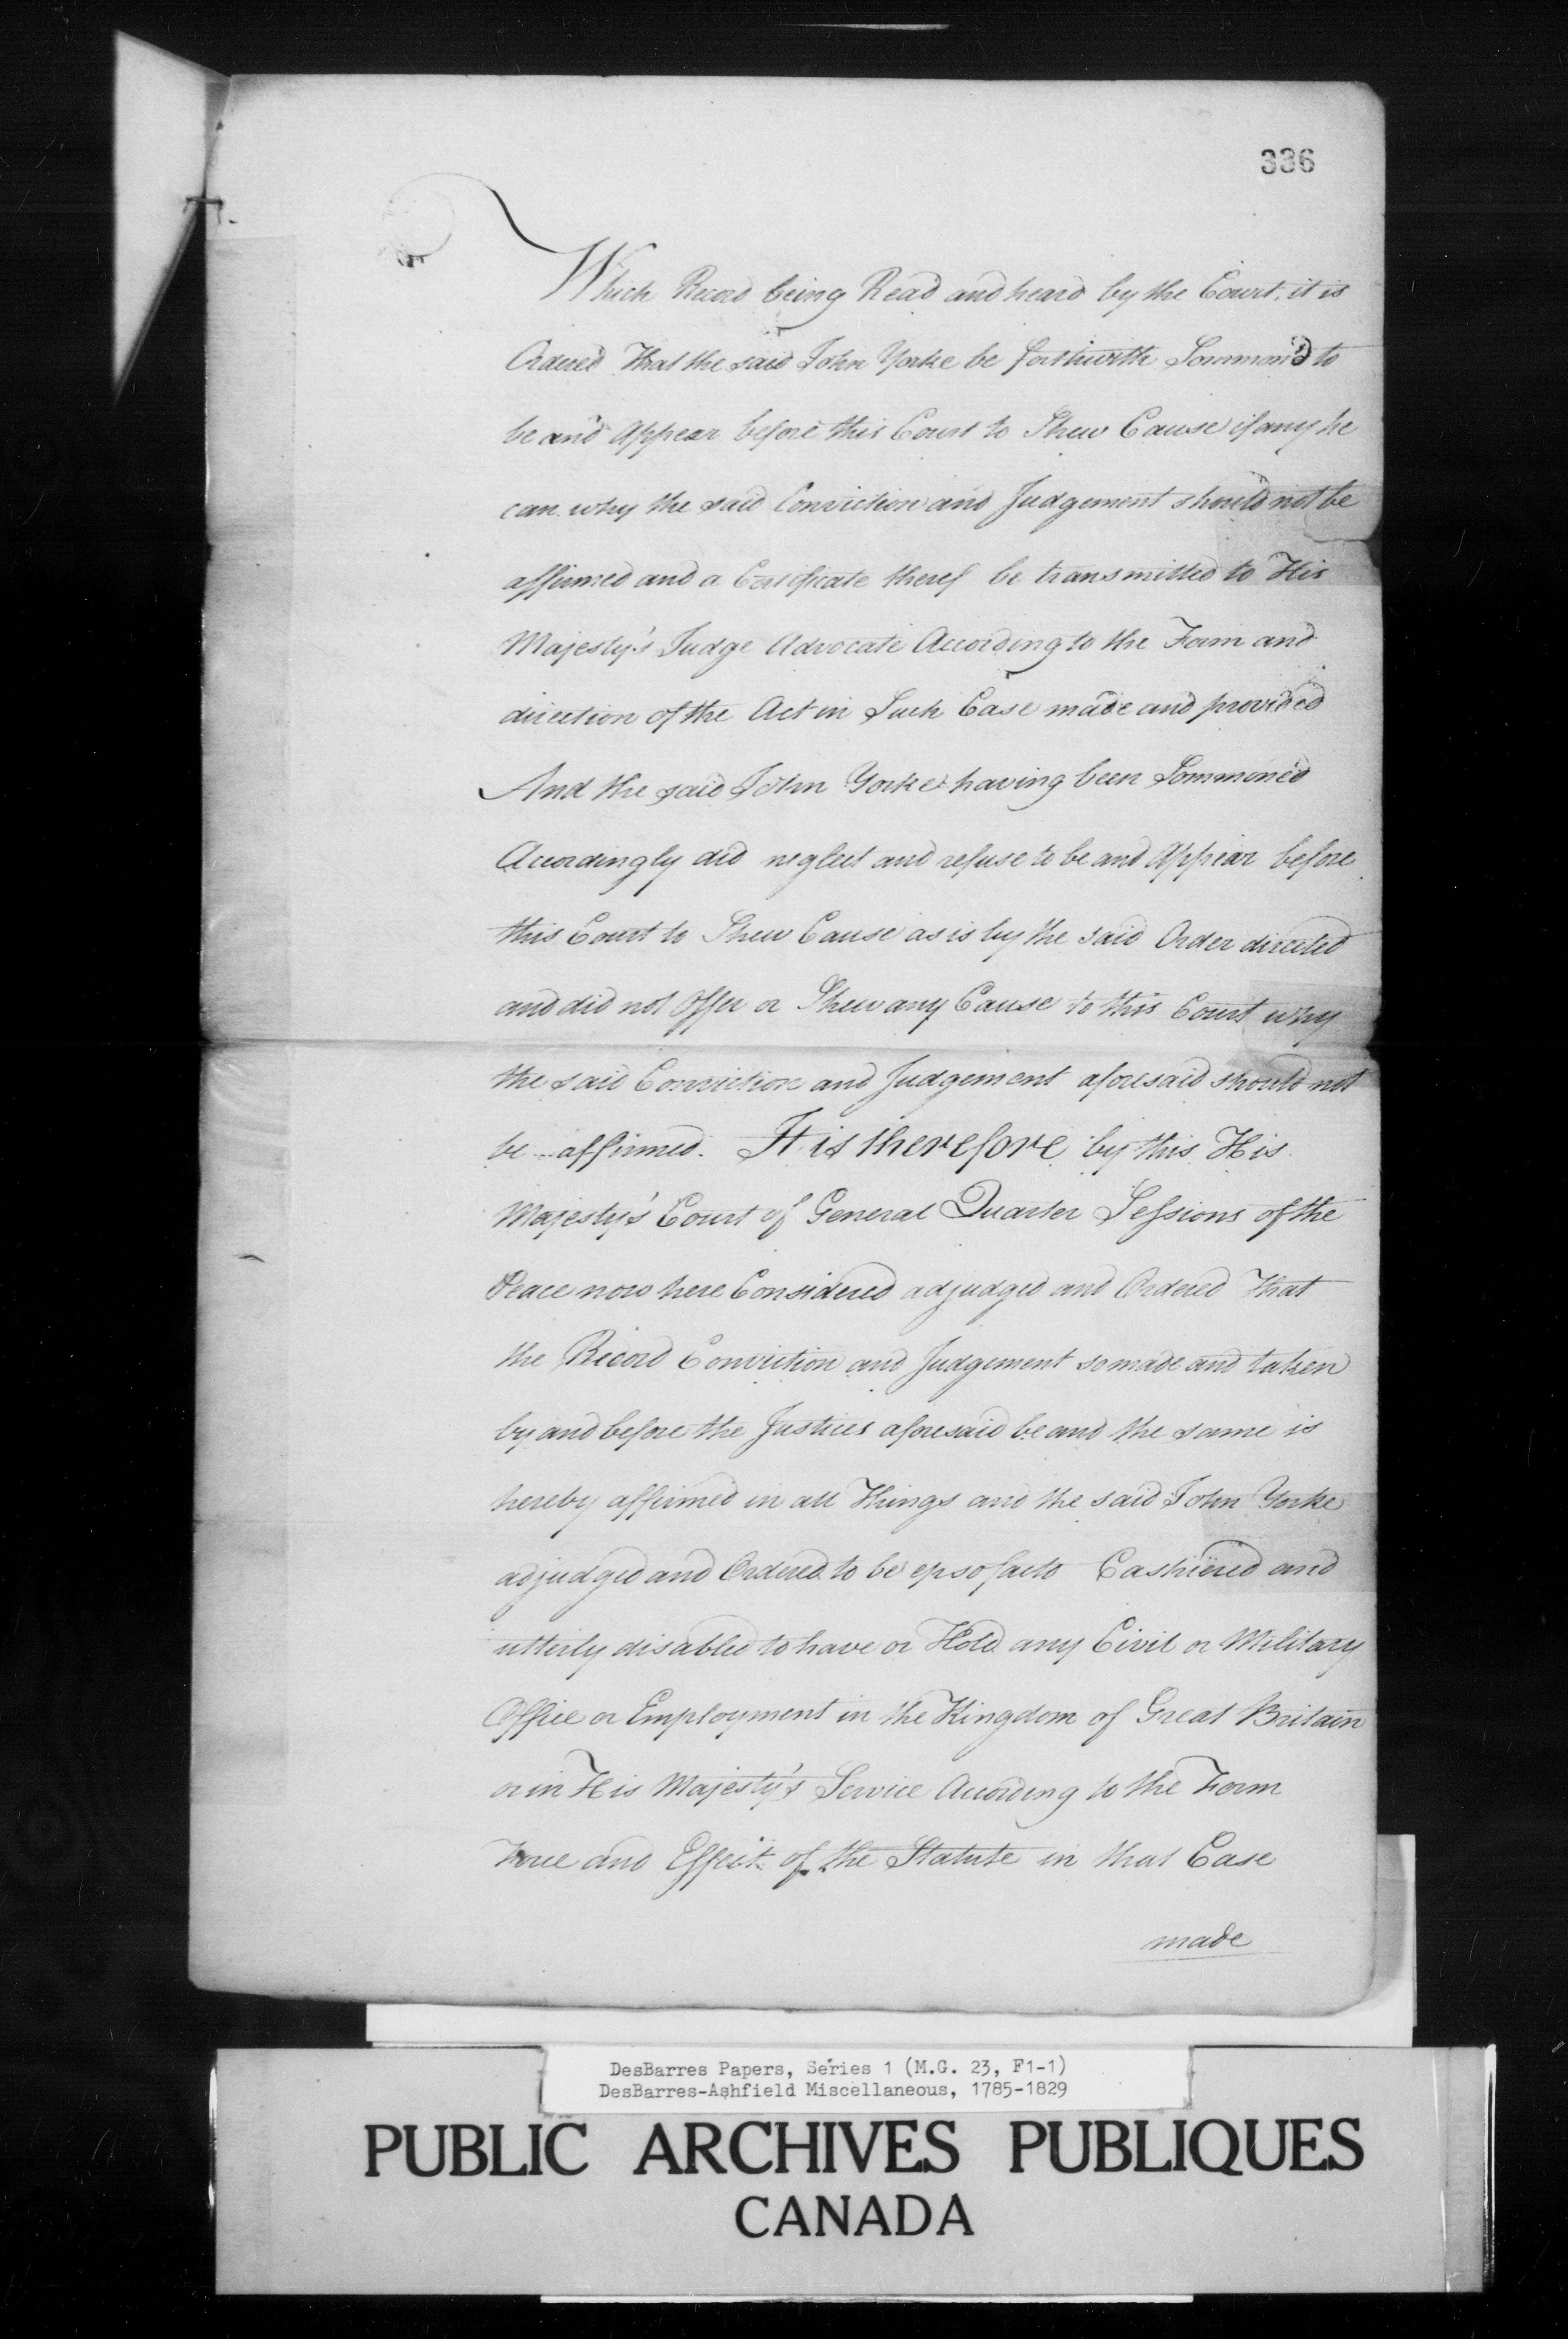 336
Which Record being Read and heard by the Court, it is
Ordered That the said John Yorke be forthwith Sommon'd to
be and Appear before this Court to Shew Cause if any he
can why the said Conviction and Judgement should not be
affirmed and a Certificate theref be transmitted to His
Majesty's Judge Advocate According to the Form and
direction of the Act in Such Case made and provided
And the said John Yorke having been Sommoned
Accordingly did neglect and refuse to be and Appear before
this Court to Shew Cause as is by the said Order directed
and did not Offer or Shew any Cause to this Court why
the said Conviction and Judgement aforesaid should not
be affirmed. It is therefore by this His
Majesty's Court of General Quarter Sessions of the
Peace now here Considered adjudged and Ordered That
the Record Conviction and Judgement so made and taken
by and before the Justices aforesaid be and the same is
hereby affirmed in all Things and the said John Yorke
adjudged and Ordered to be epso facto Cashiered and
utterly disabled to have or Hold any Civil or Military
Office or Employment in the Kingdom of Great Britain
or in His Majesty's Service According to the Form
Force and Effect of the Statute in that Case
made
DesBarres Papers, Series 1 (M.G. 23, F1-1)
DesBarres-Ashfield Miscellaneous, 1785-1829
PUBLIC ARCHIVES PUBLIQUES
CANADA